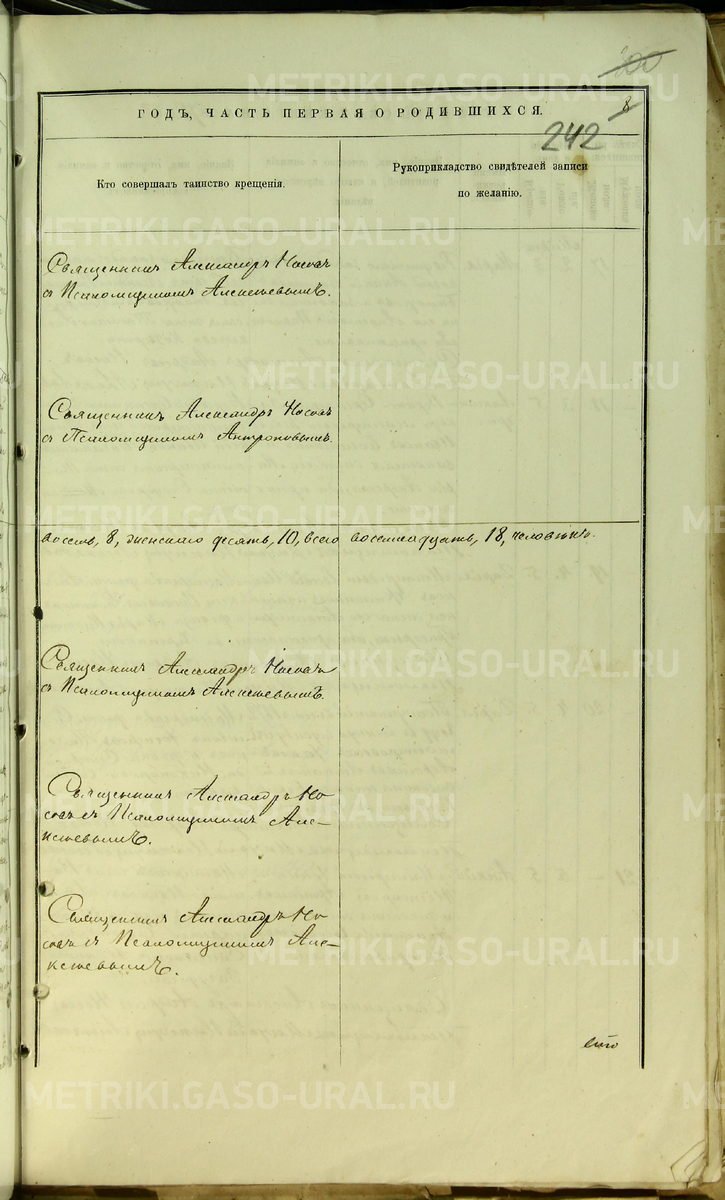 METRIKI.GASO-URAL.RU
8
ГОДЪ, ЧАСТЬ ПЕРВАЯ О РОДИВШИХСЯ.
242
Кто совершалъ таинство крещенія.
Рукоприкладство свидѣтелей записи
по желанію.
Священникъ Александръ Носовъ
съ Псаломщикомъ Алексѣевымъ.
Священникъ Александръ Носовъ
съ Псаломщикомъ Антроповымъ.
восемь, 8, женскаго десять, 10, всего восемнадцать, 18, человѣкъ.
Священникъ Александръ Носовъ
съ Псаломщикомъ Алексѣевымъ.
Священникъ Александръ Но
совъ съ Псаломщикомъ Але-
ксѣевымъ.
Священникъ Александръ Но
совъ съ Псаломщикомъ Але-
ксѣевымъ.